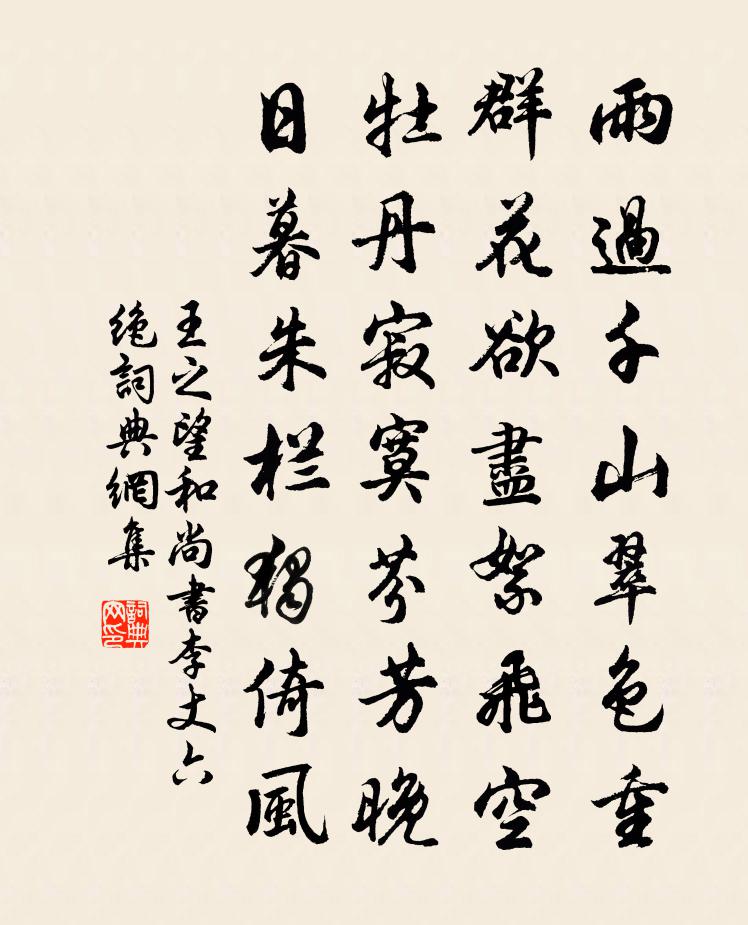 雨過千山翠色重
群花欲盡絮飛空
牡丹寂寞芬芳晚
日暮朱栏獨倚風
王之望和尚書李丈六
绝詞典網集
詞典网印